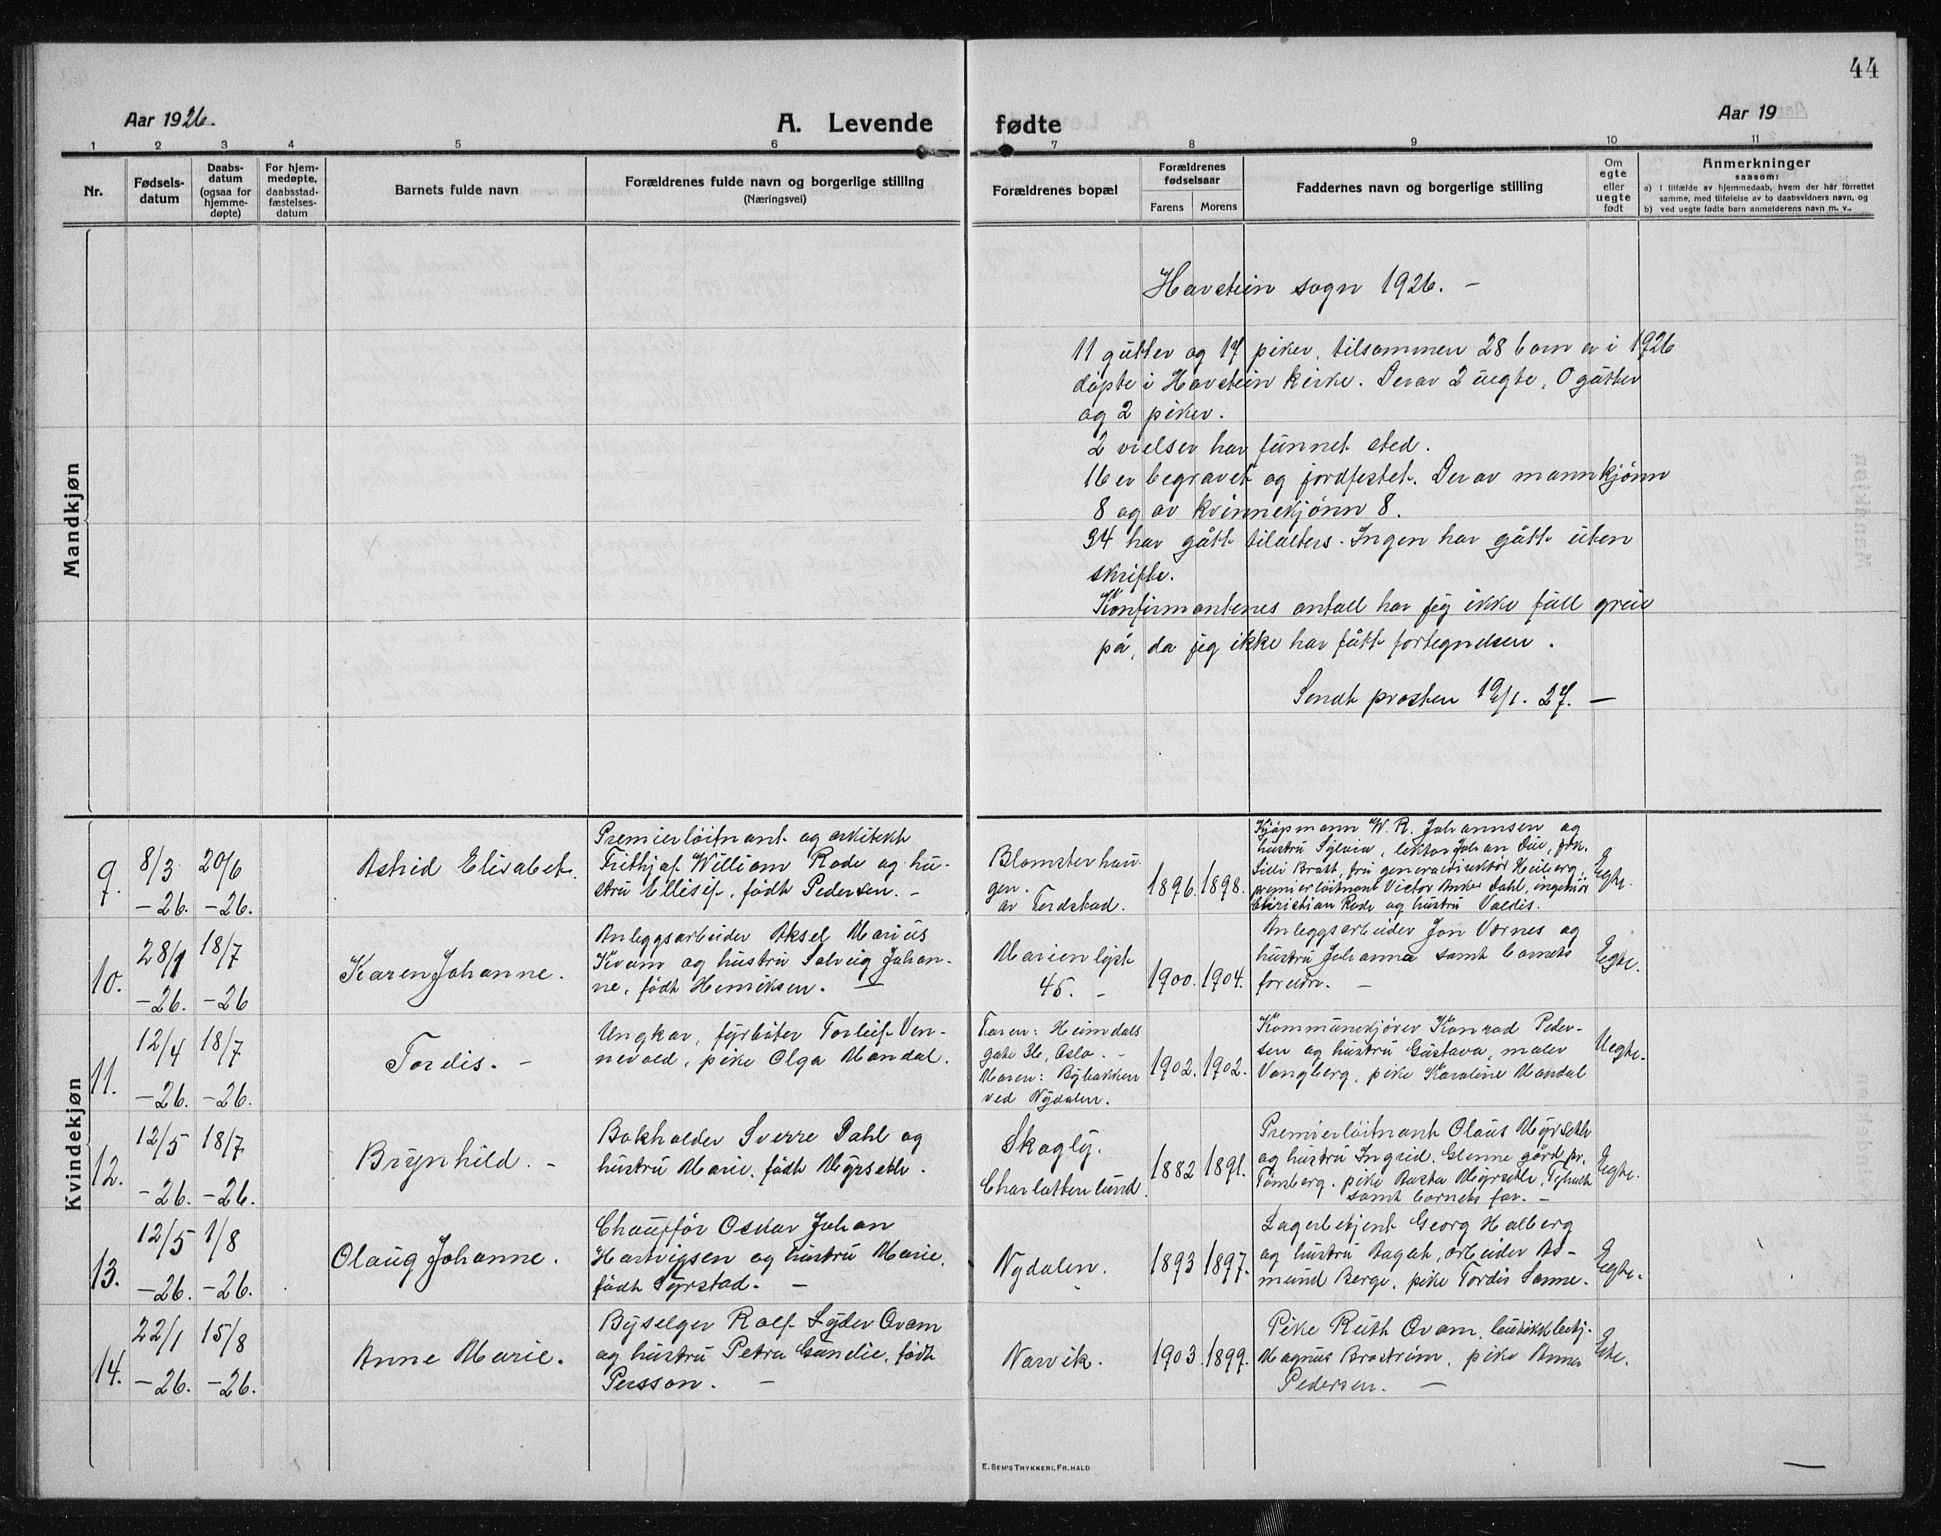 44
Aar 1926.
A. Levende
fødte
Aar 19
1 2 3 4 5 6 7 8 9 10 11
Nr.
Fødsels-
datum
Daabs-
datum
(ogsaa for
hjemme-
døpte)
For hjem-
medøpte,
daabsstad-
fæstelses-
datum
Barnets fulde navn
Forældrenes fulde navn og borgerlige stilling
(Næringsvei)
Forældrenes bopæl
Forældrenes
fødselsaar
Farens
Morens
Faddernes navn og borgerlige stilling
Om
egte
eller
uegte
født
Anmerkninger
saasom:
a) i tilfælde av hjemmedaab, hvem der har forrettet
samme, med tilføielse av to daabsvidners navn, og
b) ved uegte fødte barn anmelderens navn m. v..
Mandkjøn
Havstein sogn 1926. –
11 gutter og 17 piker, tilsammen 28 barn er i 1926
døpte i Havstein kirke. Derav 2 uegte, 0 gutter
og 2 piker.
2 vielser har funnet sted.
16 er begravet og jordfestet. Derav mannkjønn
8 og av kvinnekjønn 8.
34 har gått tilalters. Ingen har gått uten
skrifte.
Konfirmantenes antall har jeg ikke full greie
på, da jeg ikke har fått fortegnelsen.
Sendt prosten 19/1. 27. –
Kvindekjøn
9.
8/3
–26.
20/6
–26.
Astrid Elisabet.
Premierløitnant og arkitekt
Frithjof William Rode og hu-
stru Ellisif, født Pedersen. –
Blomsterhau-
gen.
av Ferdstad.
1896.
1898.
Kjøpmann W. R. Johannsen og
hustru Sylvia, lektor Johan Øie, frk.
Lilli Bratt, fru generaldirektør Heiberg,
premierløitnant Victor Anker Dahl, ingeniør
Christian Rode og hustru Valdis.
Egte.
10.
28/1
–26.
18/7
–26
Karen Johanne.
Anleggsarbeider Aksel Marius
Kvam og hustru Solveig Johan-
ne, født Henriksen. –
Marienlyst
45. –
1900.
1904.
Anleggsarbeider Jon Værnes og
hustru Johanna samt barnets
foreldre. –
Egte.
11.
12/4
–26.
18/7
–26.
Tordis. –
Ungkar, fyrbøter Torleif Ven-
nevold, pike Olga Mandal.
Faren: Heimdals
gate 36, Oslo. –
Moren: Bybakken
ved Nydalen.
1902.
1902.
Kommunekjører Konrad Peder-
sen og hustru Gustava, maler
Vangberg, pike Karoline Mandal
Uegte.
12.
12/5
–26.
18/7
–26.
Brynhild. –
Bokholder Sverre Dahl og
hustru Marie, født Myrseth.
Skogly.
Charlottenlund.
1882
1891.
Premierløitnant Olaus Myrseth
og hustru Ingrid, Glenne gård pr.
Tønsberg. pike Borta Myrseth,
samt barnets far. –
Egte.
13.
12/5
–26.
1/8
–26.
Olaug Johanne.
Chauffør Oskar Johan
Hartvigsen og hustru Marie,
født Syrstad. –
Nydalen.
1893
1897.
Lagerbetjent Georg Halberg
og hustru Aagot, arbeider As-
mund Berge, pike Tordis Sanne.
Egte.
14.
22/1
–26.
15/8
–26.
Anne Marie.
Byselger Rolf Lyder Ovam
og hustru Petra Gunelie, født
Persson. –
Narvik.
1903.
1899.
Pike Ruth Ovam, butikkbetj.
Magnus Brostrøm, pike Anna
Pedersen. –
Egte.
E. SEM'S TRYKKERI, FR.HALD